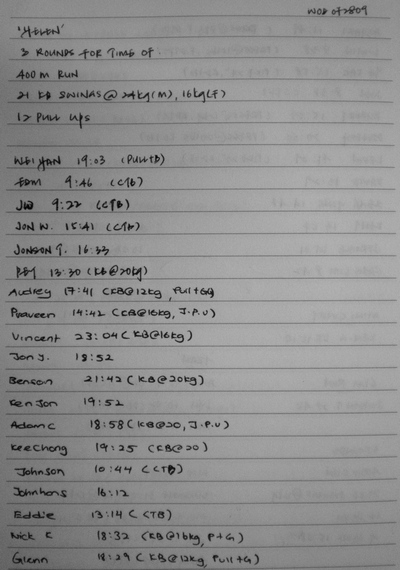 WOD 072809
'HELEN'
3 ROUNDS FOR TIME OF.
400 M RUN
21 KB SWINGS @ 24kg(M), 16kg(F)
12 PULL UPS
WEIYAN 19:03 (PULL+B)
EDM 9:46 (CTB)
JW 9:22 (CTB)
JON W. 15:41 (CTB)
JONSON T. 16:33
13:30 (KB@20kg)
Audrey 17:41 (KB@12kg, Pull+GB)
Praveen 14:42 (KB@16kg, J.P.U)
Vincent 23:04 (KB@16kg)
Jon Y. 18:52
Benson 21:42 (KB@20kg)
Ken Jon 19:52
Adam C 18:58 (KB@20, J.P.U)
KeeChong 19:25 (KB@20)
Johnson 10:44 (CTB)
Johnhons 16:12
Eddie 13:14 (CTB)
Nick K 18:32 (KB@16kg, P+G)
Glenn 18:29 (KB@12kg, Pull+G)